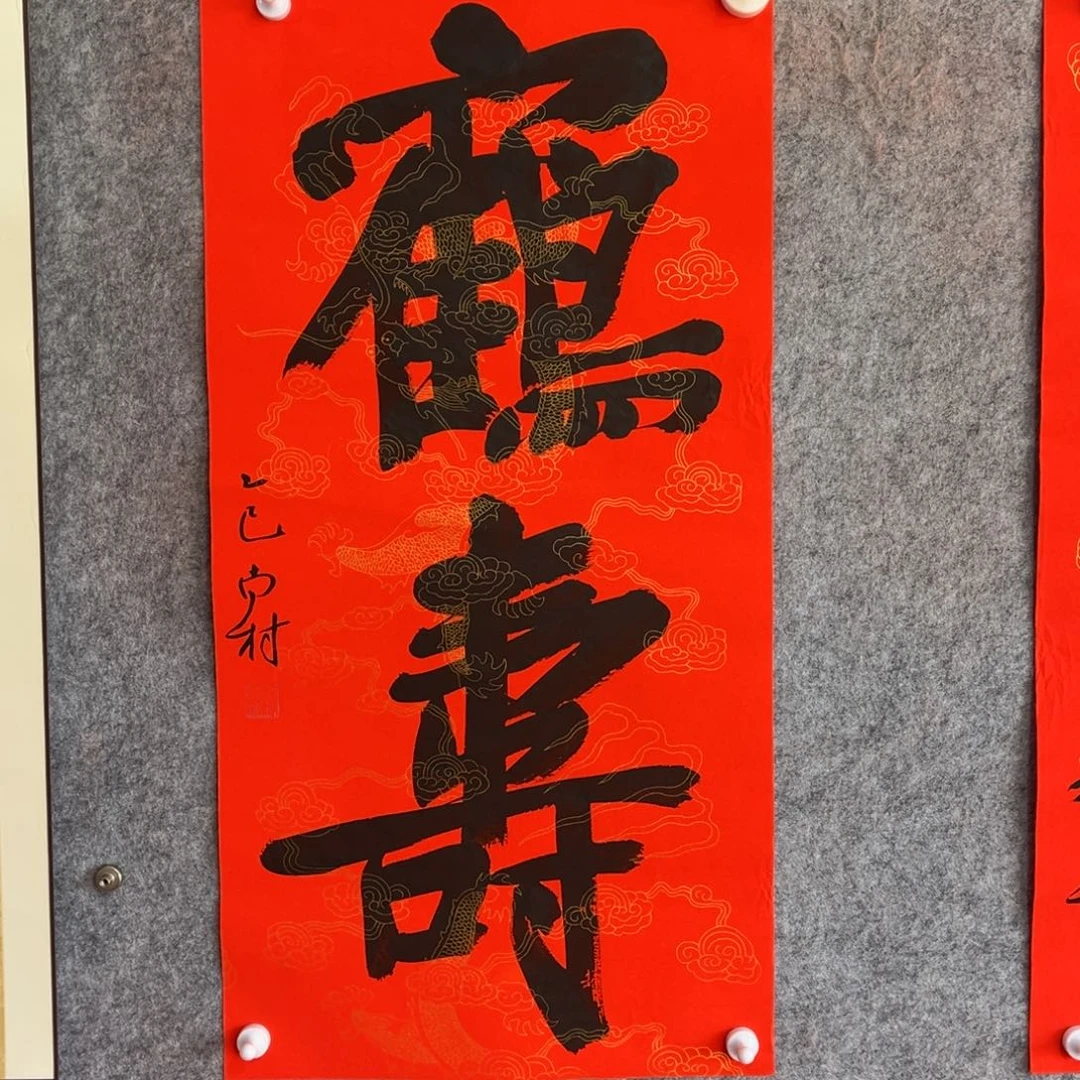 鶴壽
乙巳
村